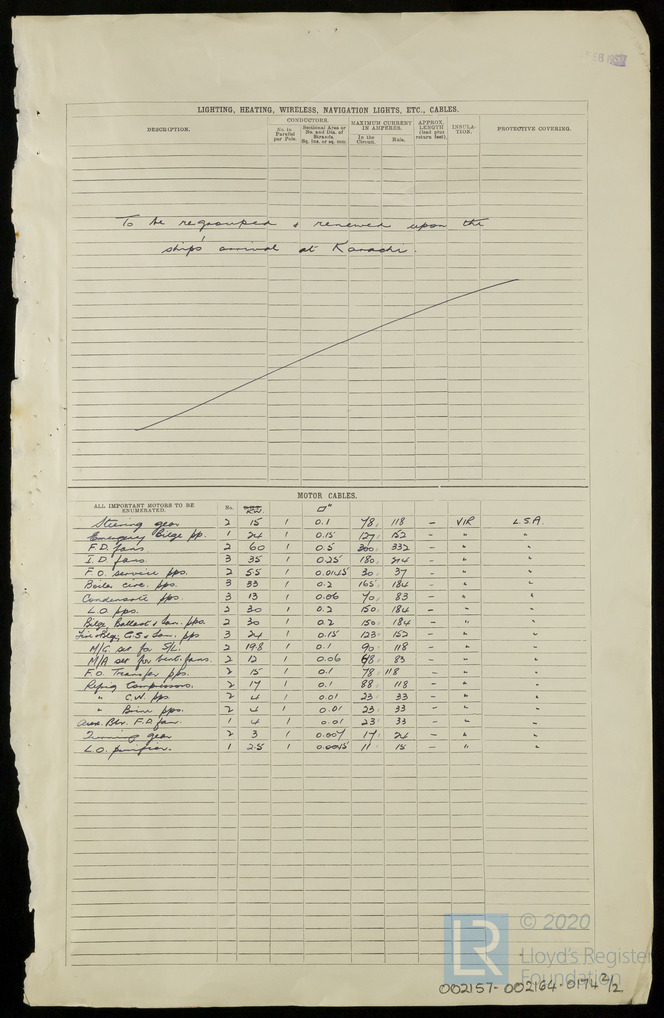 FEB 1951
LIGHTING, HEATING, WIRELESS, NAVIGATION LIGHTS, ETC., CABLES.
DESCRIPTION. CONDUCTORS. No. in Parallel per Pole. Sectional Area or No. and Dia. of Strands Sq. ins. or sq. mm. MAXIMUM CURRENT IN AMPERES. In the Circuit. Rule. APPROX. LENGTH (lead plus return feet). INSULATION. PROTECTIVE COVERING.
To be regrouped & renewed upon the
ship's arrival at Karachi.
MOTOR CABLES.
ALL IMPORTANT MOTORS TO BE ENUMERATED. No. KW. □"
Steering gear 2 15 1 0.1 78 118 — VIR L.S.A.
Emergency Bilge pp. 1 24 1 0.15 127 152 — " "
F.D. fans 2 60 1 0.5 300 332 — " "
I.D. fans. 3 35 1 0.25 180 214 — " "
F.O. service pps. 2 5.5 1 30 37 — " "
Boiler circ. pps. 3 33 1 0.2 165 184 — " "
Condensate pps. 3 13 1 0.06 70 83 — " "
L.O. pps. 2 30 1 0.2 150 184 — " "
Bilge, Ballast & San. pps. 2 30 1 0.2 150 184 — " "
Fire, Blg, G.S. & San. pps 3 24 1 0.15 123 152 — " "
M/G set for S/L. 2 19.8 1 0.1 90 118 — " "
M/A set for vent. fans. 2 12 1 0.06 68 83 — " "
F.O. Transfer pps. 2 15 1 0.1 78 118 — " "
Refrig Compressors. 2 17 1 0.1 88 118 — " "
" C.W. pps 2 4 1 0.01 23 33 — " "
" Brine pps. 2 4 1 0.01 23 33 — " "
Aux. Blr. F.D. fan. 1 4 1 0.01 23 33 — " "
Turning gear 2 3 1 0.007 17 24 — " "
L.O. purifier. 1 2.5 1 0.0045 11 15 — " "
LR © 2020
Lloyd's Register
Foundation
002157-002164-0174 2/2